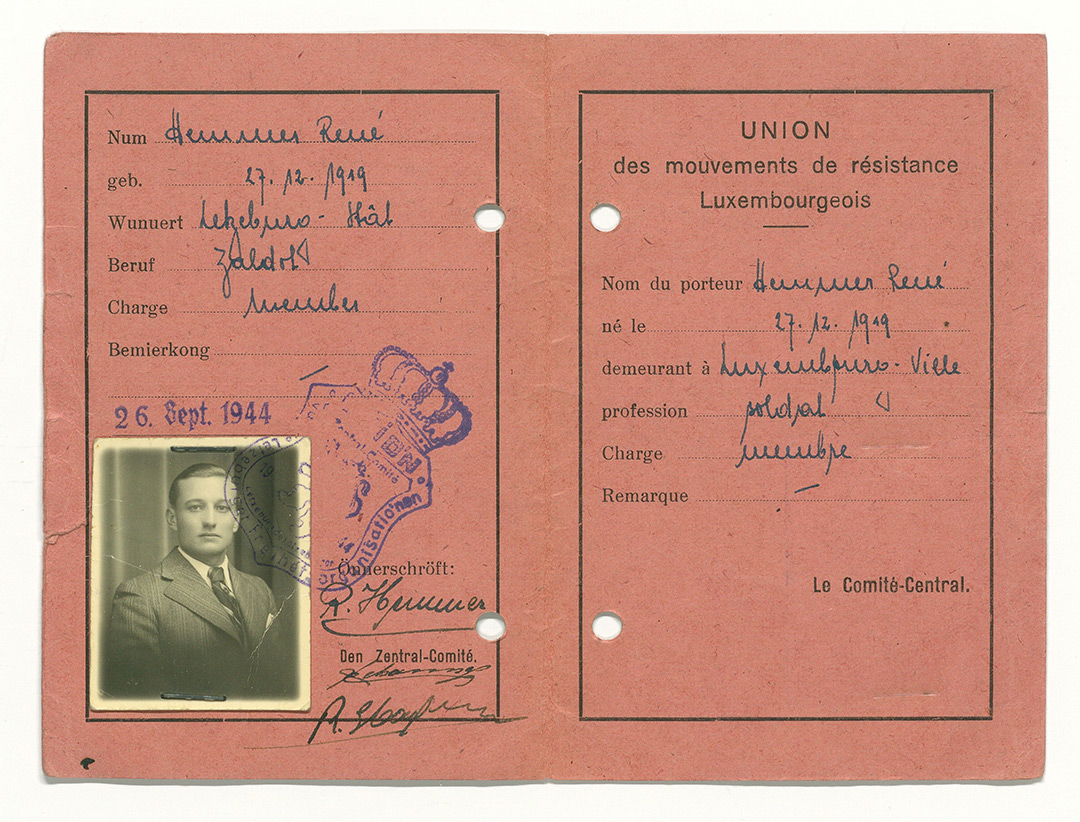 Num Hemmer René
geb. 27. 12. 1919
Wunuert Letzeburg - Stât
Beruf Zaldot
Charge member
Bemierkong
26. Sept. 1944
Zentral-Comité
organisatiounen
Önnerschröft:
R. Hemmer
Den Zentral-Comité.
UNION
des mouvements de résistance
Luxembourgeois
Nom du porteur Hemmer René
né le 27. 12. 1919
demeurant à Luxembourg - Ville
profession soldat
Charge membre
Remarque —
Le Comité-Central.